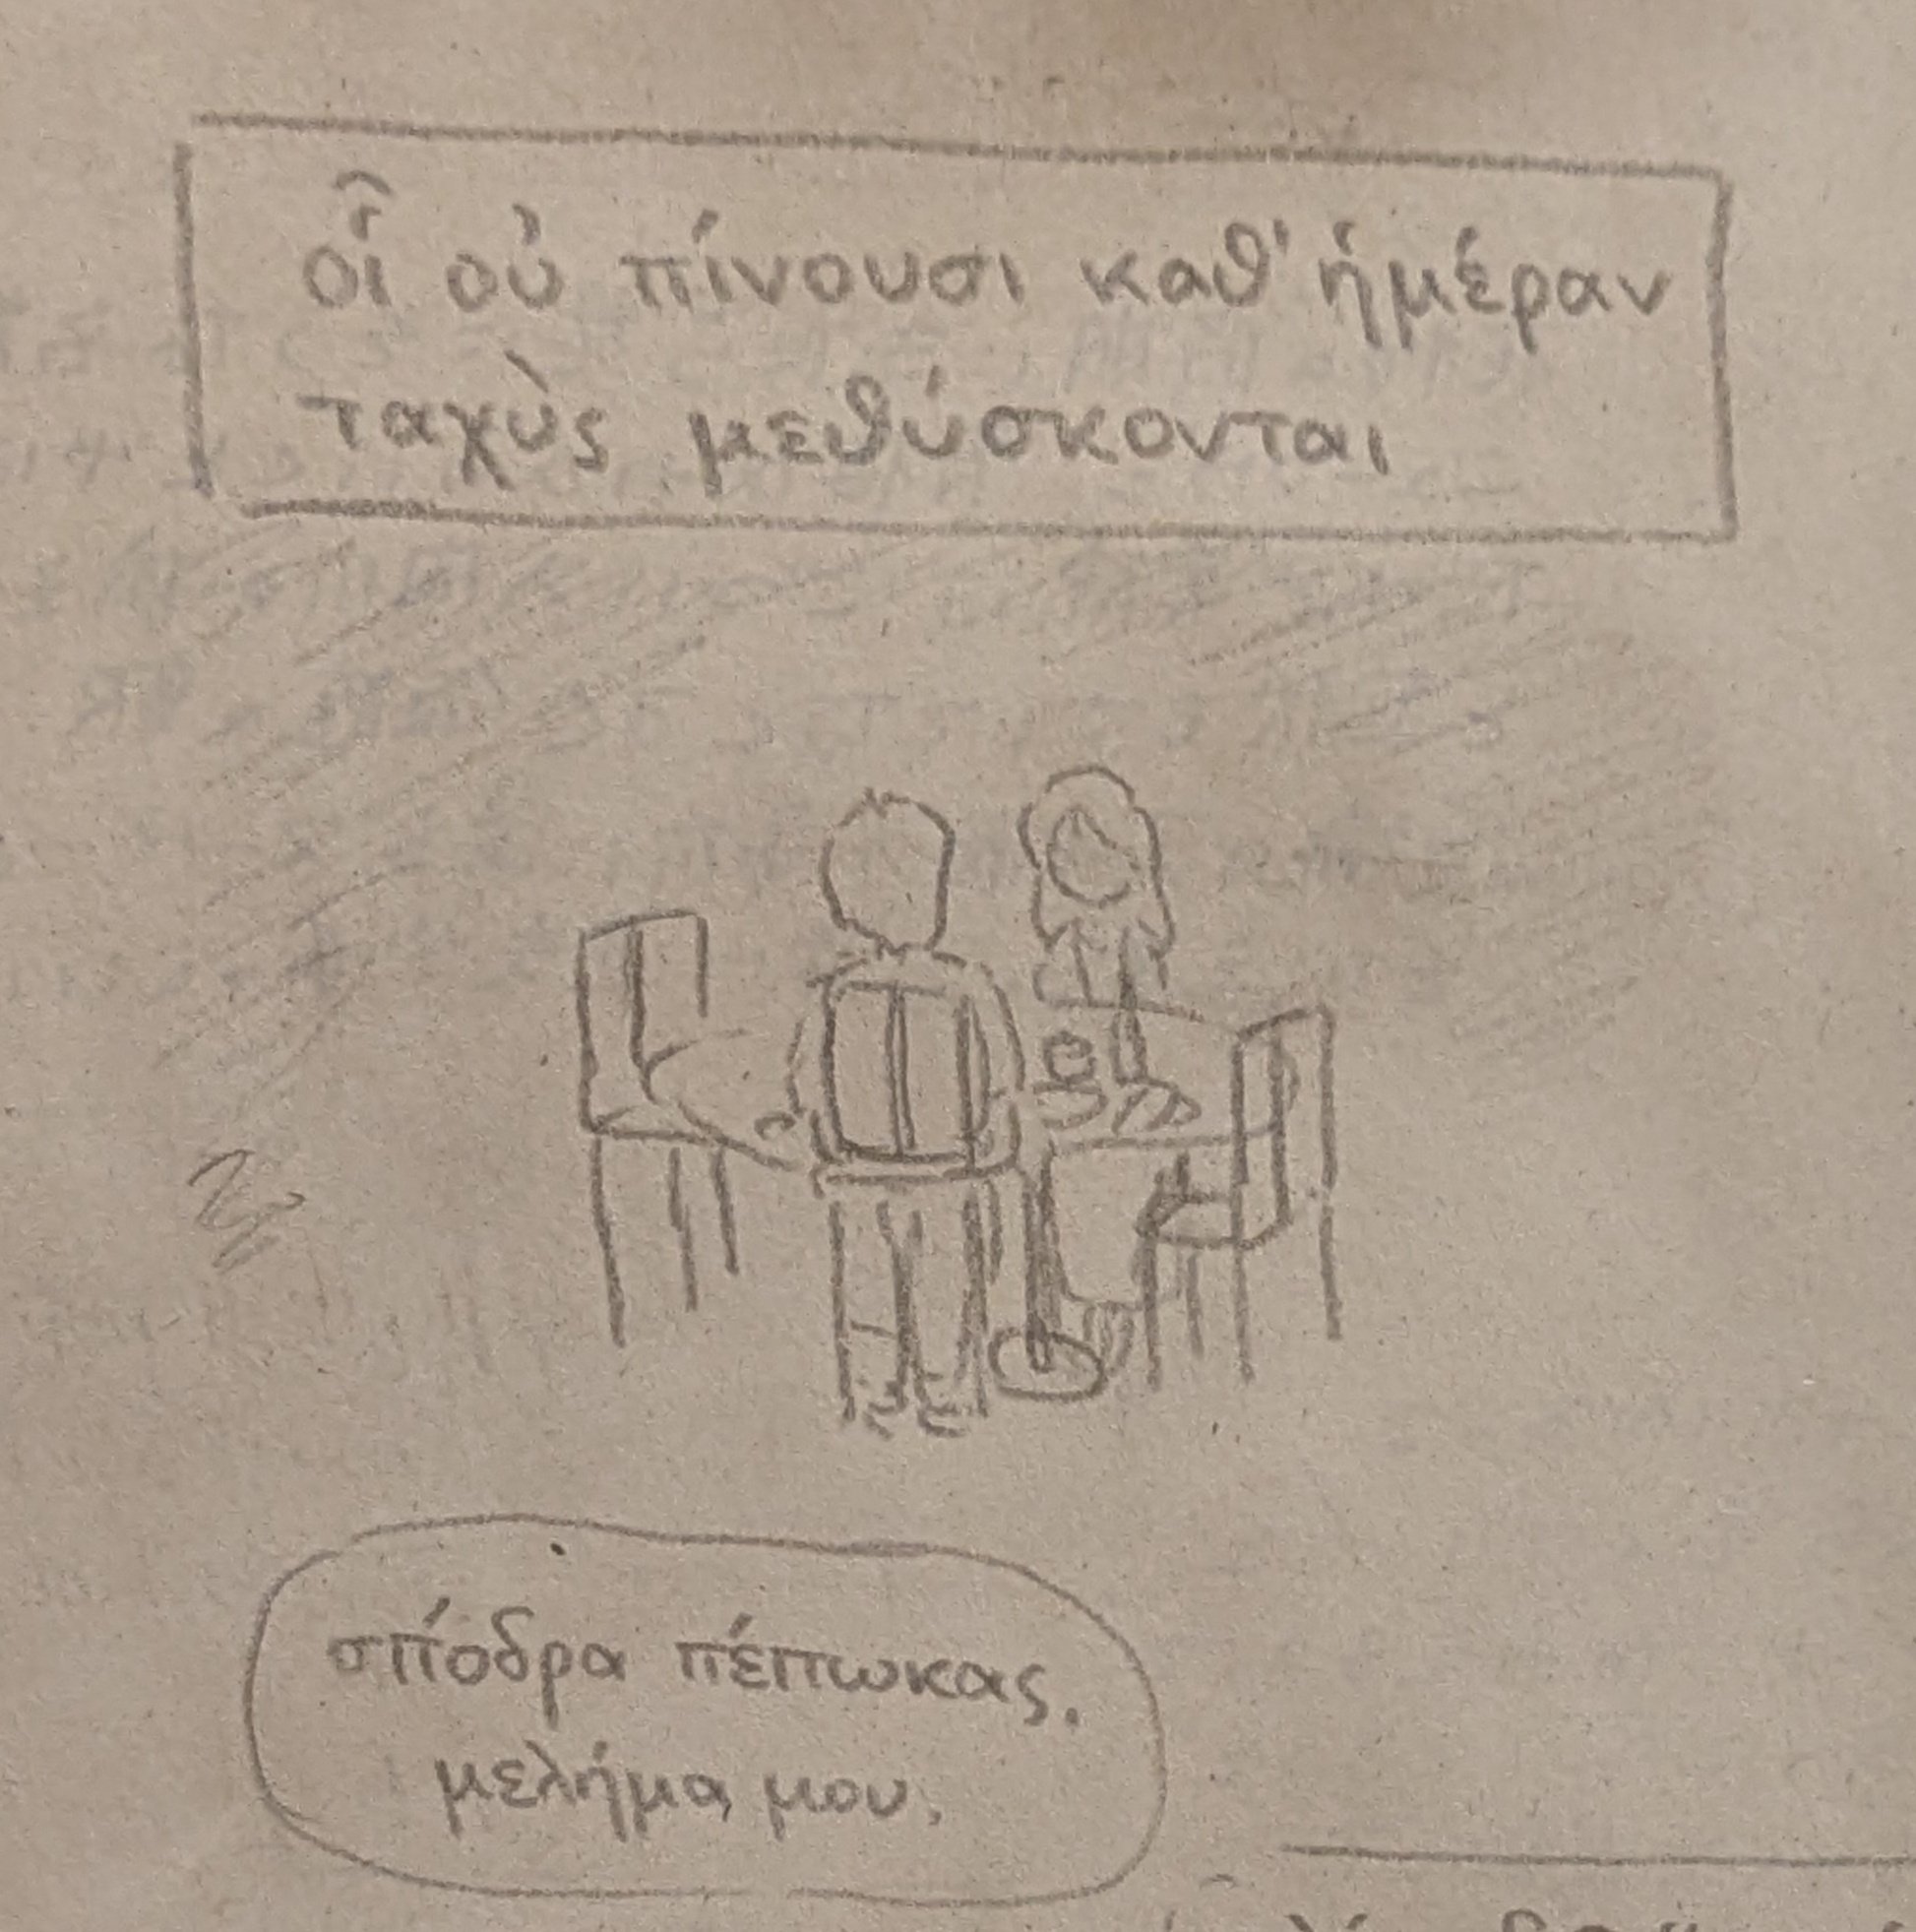 οἷ οὐ πίνουσι καθ' ἡμέραν
ταχὺς μεθύσκονται
σπόδρα πέπωκας.
μελήμα μου.